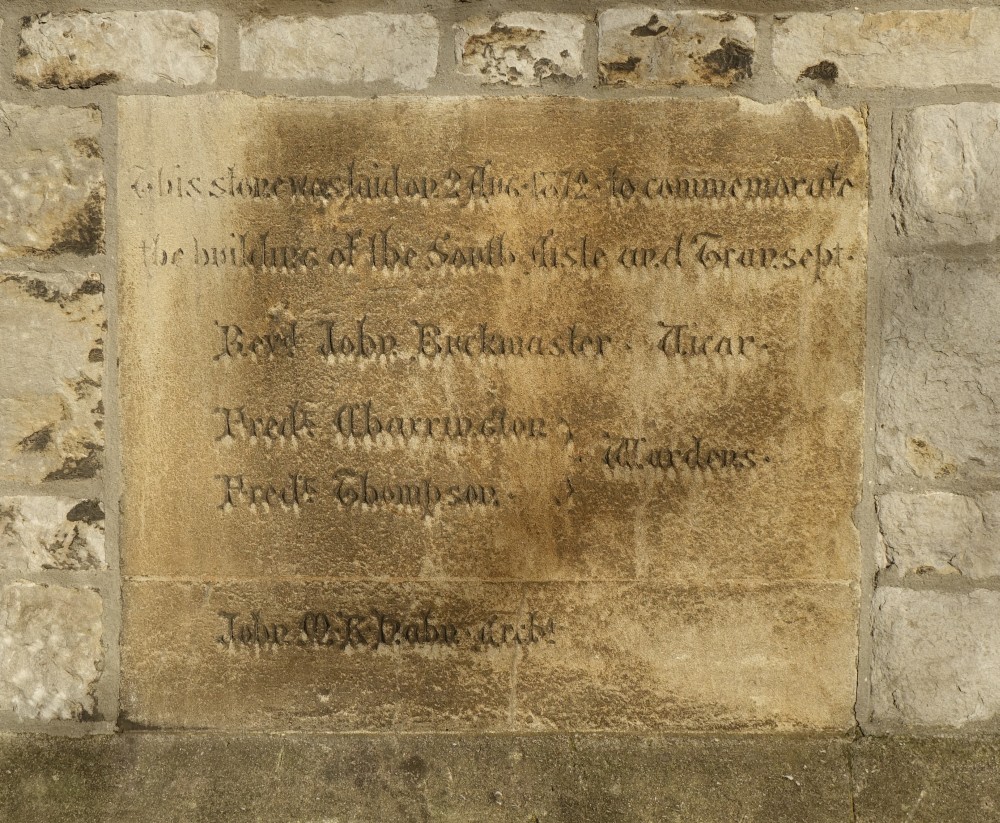 This stone was laid on 2 Aug. 1872 · to commemorate
the building of the South Aisle and Transept ·
Revd John Buckmaster · Vicar ·
Fredk Charrington } · Wardens ·
Fredk Thompson · }
John M. K Hahn · archt